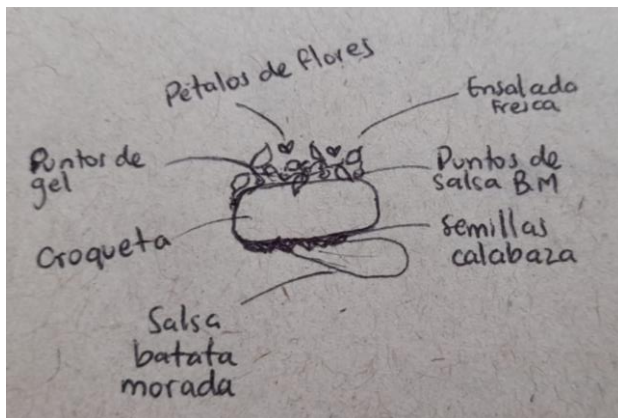 Pétalos de flores
Ensalada
Fresca
Puntos de
gel
Puntos de
salsa B.M
Croqueta
Semillas
calabaza
Salsa
batata
morada